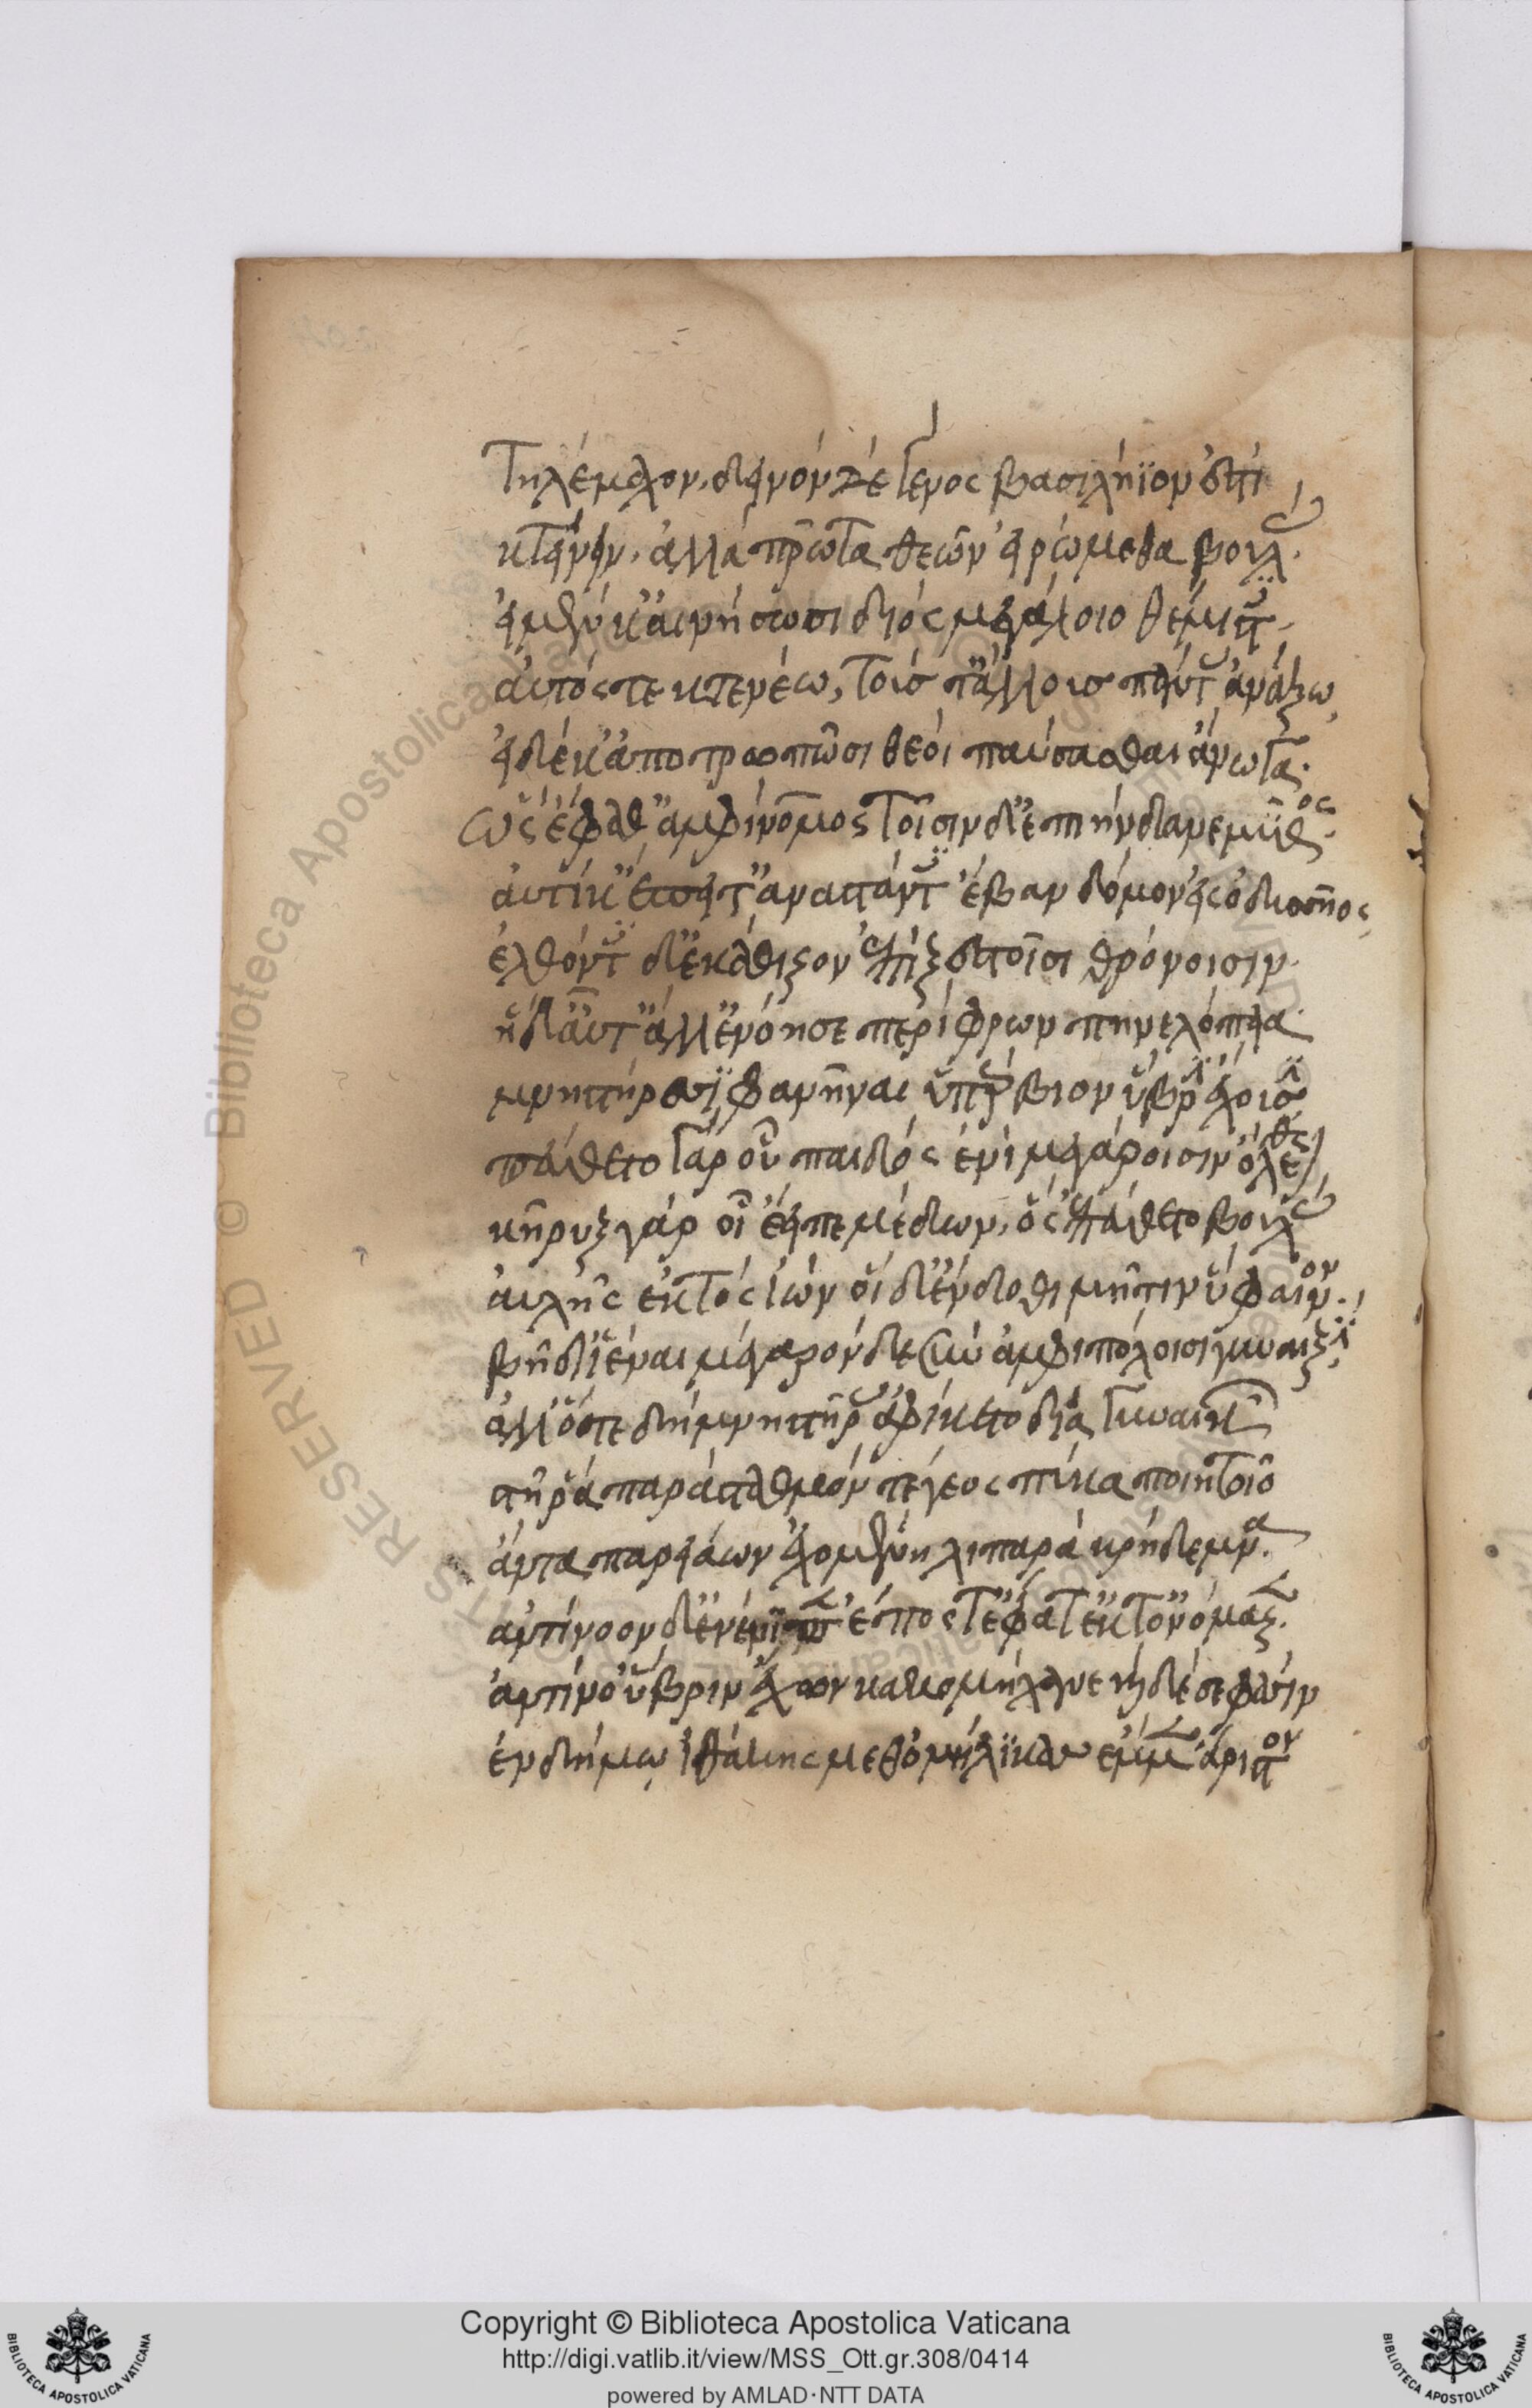 Τηλέμαχον, δεινὸν δὲ γένος βασιλήϊον ἐστὶ
κτείνειν. ἀλλὰ πρῶτα θεῶν εἰρώμεθα βουλάς.
εἰ μέν κ' αἰνήσωσι διὸς μεγάλοιο θέμιστες.
αὐτός τε κτενέω, τούς τ' ἄλλους πάντας ἀνώξω
εἰ δέ κ' ἀποτροπῶσι θεοὶ παύσασθαι ἄνωγα.
ὣς ἔφατ' ἀμφίνομος τοῖσιν δ' ἐπιήνδανε μῦθος.
αὐτίκ' ἔπειτ' ἀνστάντες ἔβαν δόμον εἰς ὀδυσῆος,
ἐλθόντες δ' ἐκάθιζον ἐπὶ ξεστοῖσι θρόνοισιν.
ἡ δ' αὖτ' ἄλλ' ἐνόησε περίφρων πηνελόπεια
μνηστήρεσσι φανῆναι ὑπέρβιον ὕβριν ἔχουσι
πεύθετο γὰρ οὗ παιδὸς ἐνὶ μεγάροισιν ὄλεθρον
κῆρυξ γάρ οἱ ἔειπε μέδων, ὃς ἐπεύθετο βουλάς
αὐλῆς ἐκτὸς ἐών οἱ δ' ἔνδοθι μῆτιν ὕφαινον.
βῆ δ' ἰέναι μέγαρον δὲ σὺν ἀμφιπόλοισι γυναιξί.
ἀλλ' ὅτε δὴ μνηστῆρας ἀφίκετο δῖα γυναικῶν
στῆ ῥα παρὰ σταθμὸν τέγεος πύκα ποιητοῖο
ἄντα παρειάων σχομένη λιπαρὰ κρήδεμνα.
ἀντίνοον δ' ἐνένιπεν ἔπος τ' ἔφατ' ἔκ τ' ὀνόμαζεν.
ἀντίνο' ὕβριν ἔχων κακομήχανε καὶ δέ σε φασὶν
ἐν δήμω ἰθάκης μεθ' ὁμήλικας ἔμμεν ἄριστον
Copyright © Biblioteca Apostolica Vaticana
http://digi.vatlib.it/view/MSS_Ott.gr.308/0414
powered by AMLAD·NTT DATA